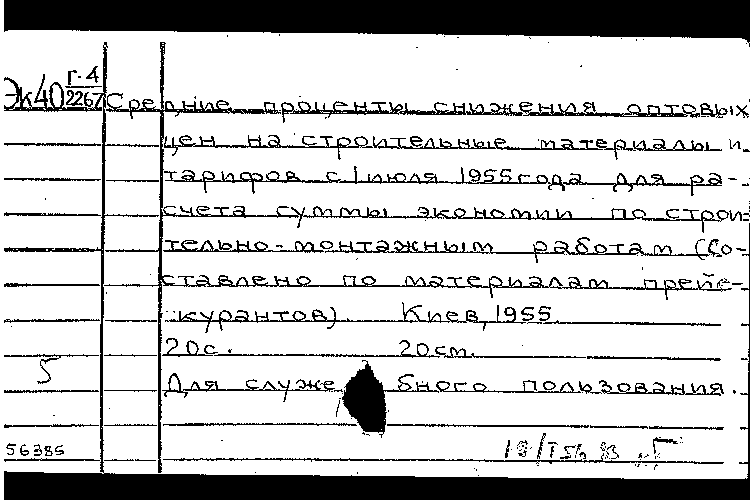 Эк40 Г-4
2267
Средние проценты снижения оптовых
цен на строительные материалы и
тарифов с 1 июля 1955 года для ра-
счета суммы экономии по строи-
тельно-монтажным работам (Со-
ставлено по материалам прейс-
курантов). Киев, 1955.
20с. 20см.
5
Для служебного пользования.
56385